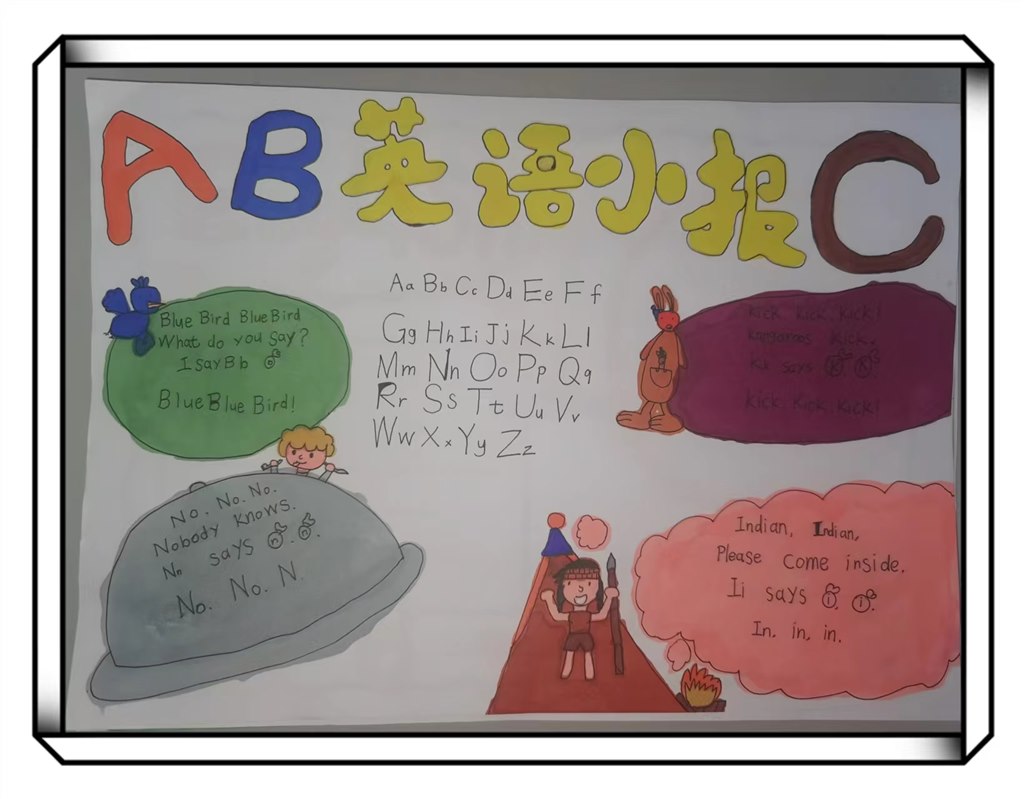 AB英语小报C
Aa Bb Cc Dd Ee Ff
Gg Hh Ii Jj Kk Ll
Mm Nn Oo Pp Qq
Rr Ss Tt Uu Vv
Ww Xx Yy Zz
Blue Bird Blue Bird
What do you say?
I say Bb B
Blue Blue Bird!
kick kick, kick!
kangaroos kick.
Kk says K. K.
kick kick kick!
No. No. No.
Nobody knows.
Nn says n. n.
No. No. N.
Indian, Indian,
Please Come inside.
Ii says i. i.
In, in, in.